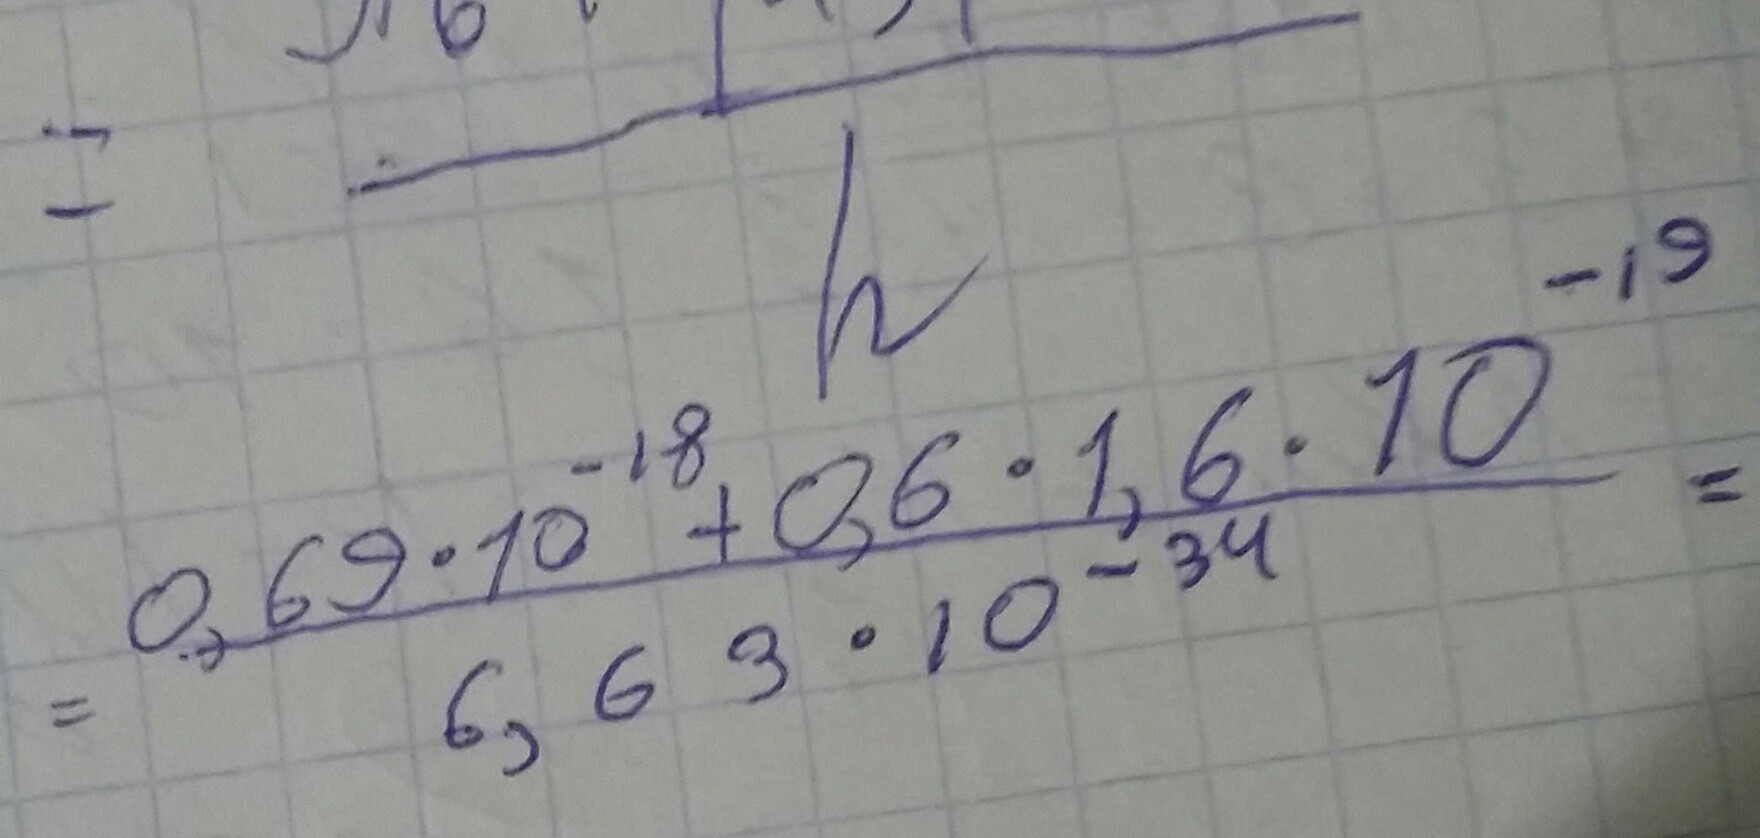 =
h
= (0,69·10^-18 + 0,6·1,6·10^-19) / (6,63·10^-34) =